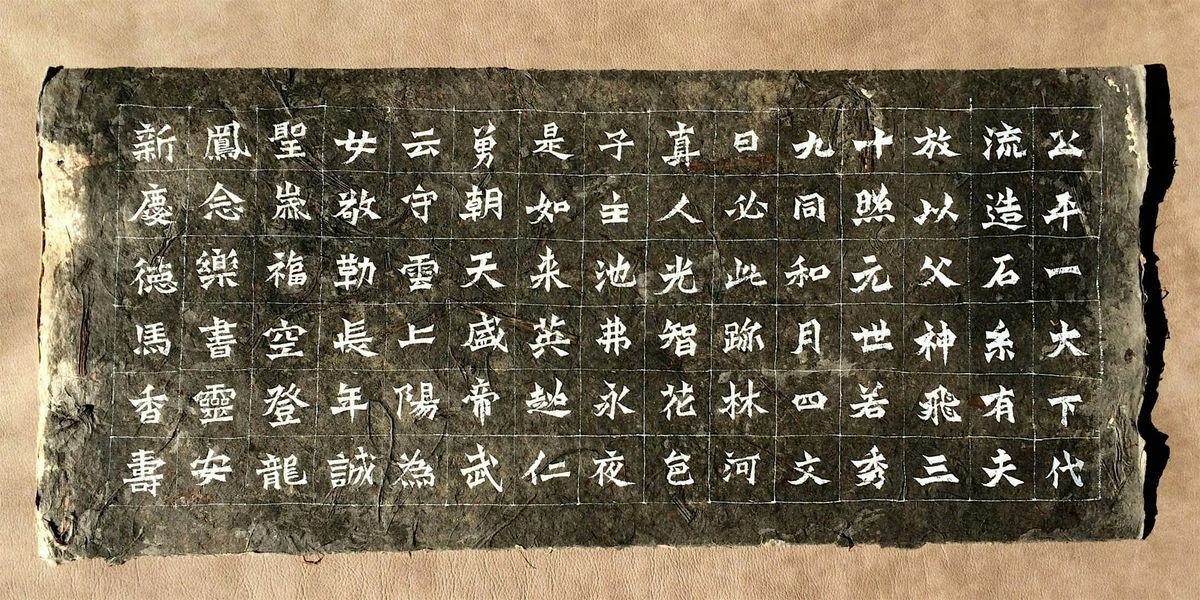 公平一大下代
流造石系有夫
放以父神飛三
十照元世若秀
九同和月四文
日必此跡林河
真人光智花色
子主池弗永夜
是如来英越仁
勇朝天盛帝武
云守雲上陽為
女敬勒長年誠
聖嵗福空登龍
鳳念樂書靈安
新慶德馬香壽